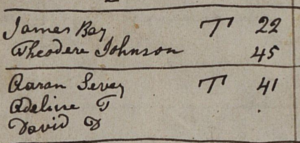 James Bay T 22
Theodore Johnson 45
Aaran Sevey T 41
Adeline T
David D